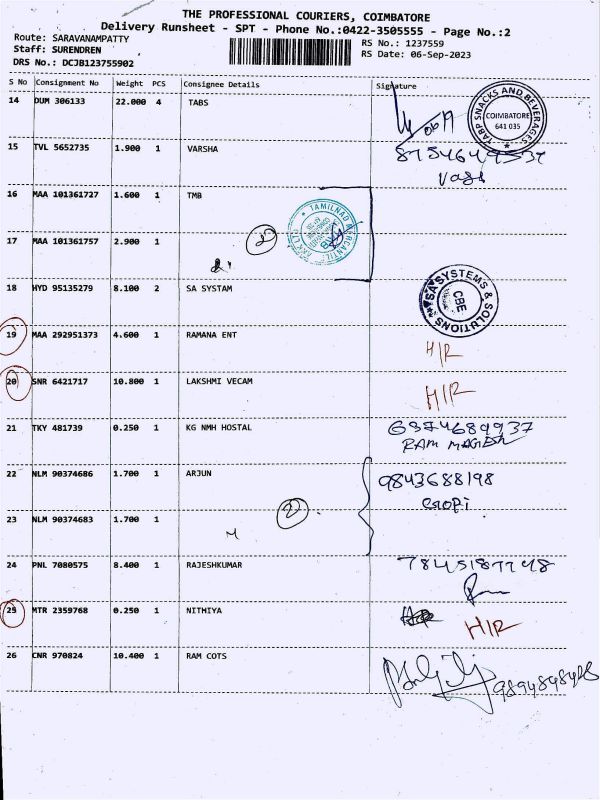 THE PROFESSIONAL COURIERS, COIMBATORE
Delivery Runsheet - SPT - Phone No.:0422-3505555 - Page No.:2
Route: SARAVANAMPATTY
Staff: SURENDREN
DRS No.: DCJB123755902
RS No.: 1237559
RS Date: 06-Sep-2023
S No Consignment No Weight PCS Consignee Details Signature
14 DUM 306133 22.000 4 TABS
TABP SNACKS AND BEVERAGES
COIMBATORE
641 035
15 TVL 5652735 1.900 1 VARSHA
16 MAA 101361727 1.600 1 TMB
TAMILNAD MERCANTILE
17 MAA 101361757 2.900 1
2
18 HYD 95135279 8.100 2 SA SYSTAM
SA SYSTEMS & SOLUTIONS
CBE
19 MAA 292951373 4.600 1 RAMANA ENT H/R
20 SNR 6421717 10.800 1 LAKSHMI VECAM H/R
21 TKY 481739 0.250 1 KG NMH HOSTAL 6374689937
RAM MAGESH
22 NLM 90374686 1.700 1 ARJUN 9843688198
Gopi
23 NLM 90374683 1.700 1
2
24 PNL 7080575 8.400 1 RAJESHKUMAR
25 MTR 2359768 0.250 1 NITHIYA H/R
26 CNR 970824 10.400 1 RAM COTS